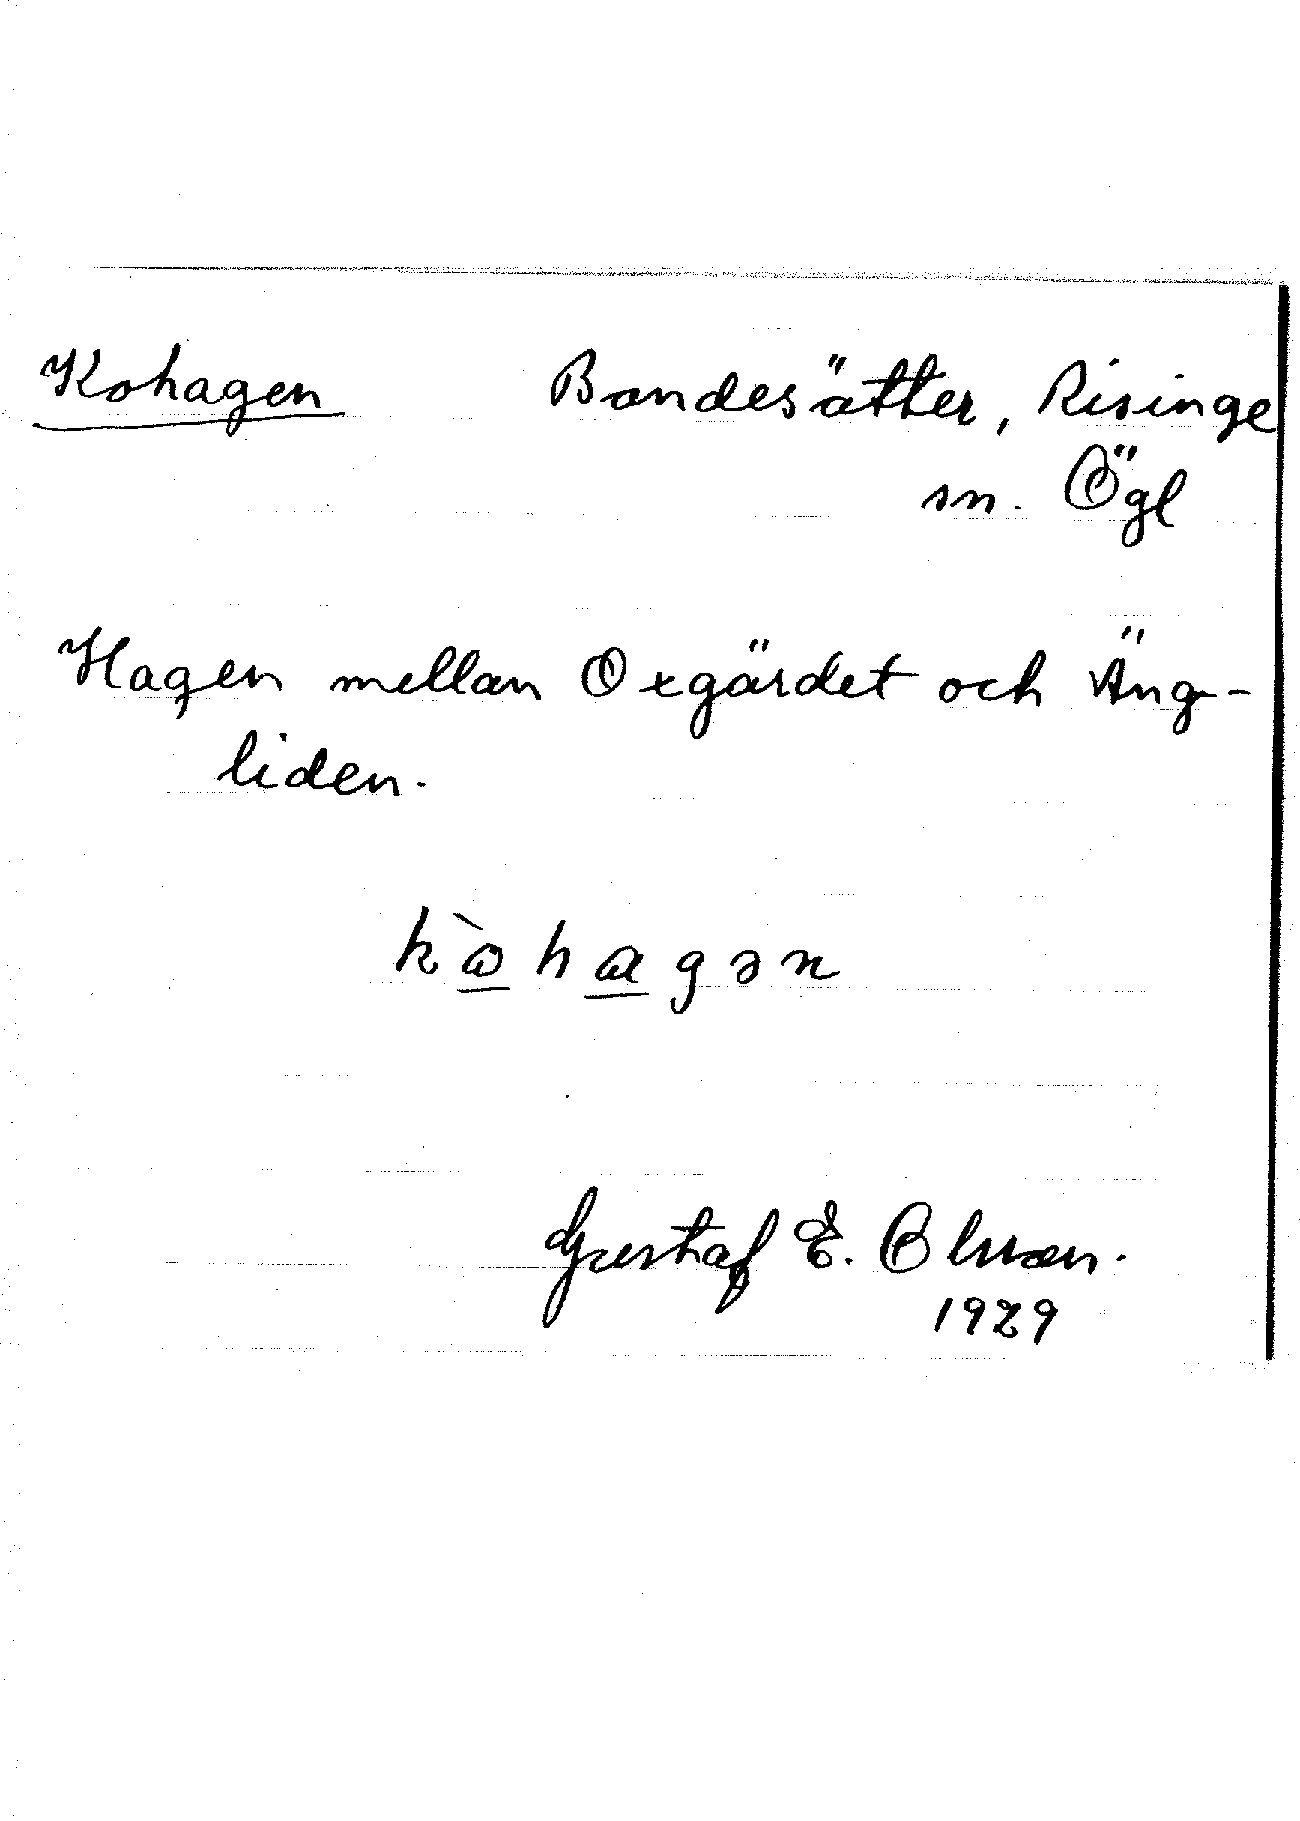 Kohagen Bondesätter, Risinge
sn. Ögl
Hagen mellan Oxgärdet och Äng-
liden.
kò̱ha̱gən
Gustaf E. Olsson.
1929